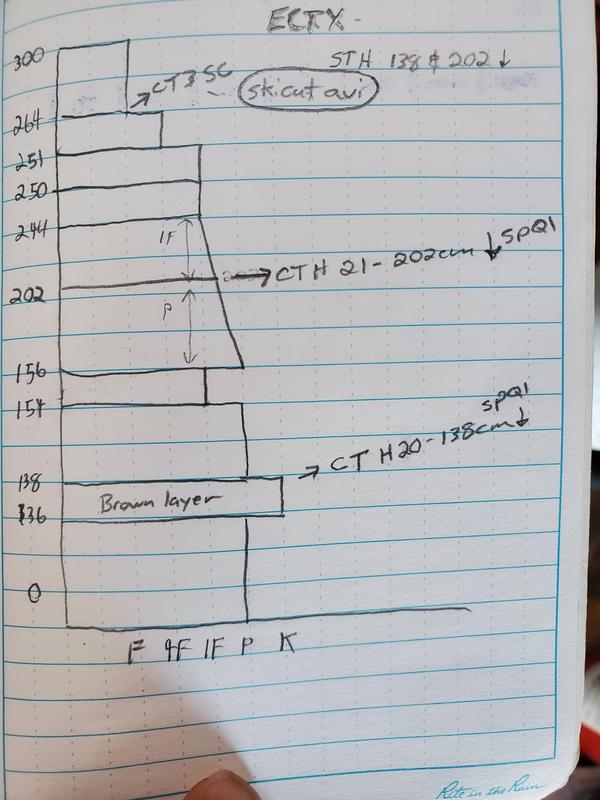 ECTX-
STH 138 & 202 ↓
300
CT3 SC
ski cut avi
264
251
250
244
1F
CTH 21 - 202cm ↓ SPQ1
202
P
156
154
SPQ1
CT H20 - 138cm ↓
138
Brown layer
136
0
F 4F 1F P K
Rite in the Rain